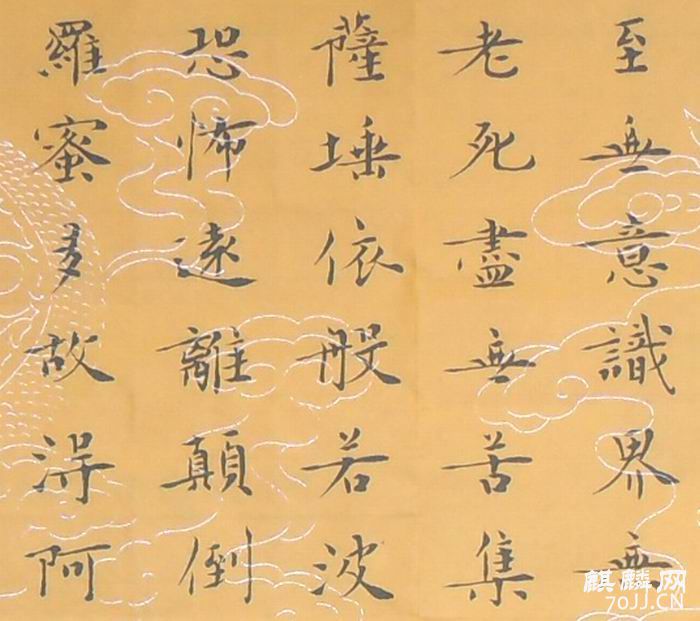 至無意識界無
老死盡無苦集
薩埵依般若波
恐怖遠離顛倒
羅蜜多故得阿
麒麟网
70JJ.CN